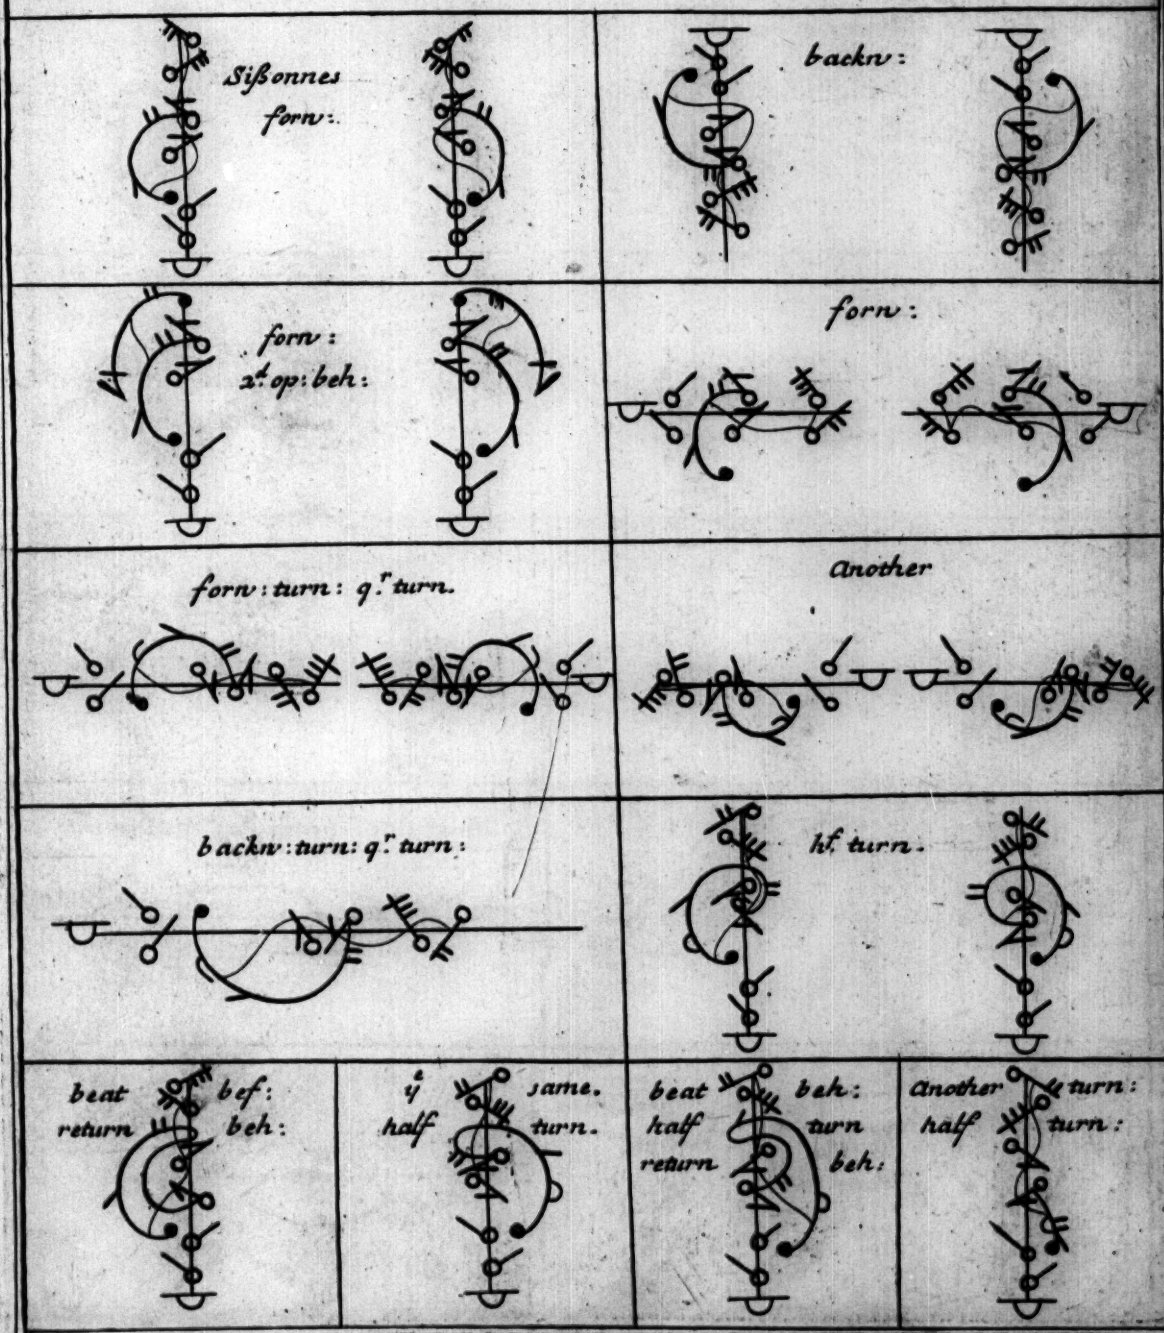 Sißonnes
forw:
backw:
forw:
2d. op: beh:
forw:
forw: turn: qr. turn.
Another
backw: turn: qr. turn:
hf. turn.
beat bef:
return beh:
ye same.
half turn.
beat beh:
half turn
return beh:
Another turn:
half turn: